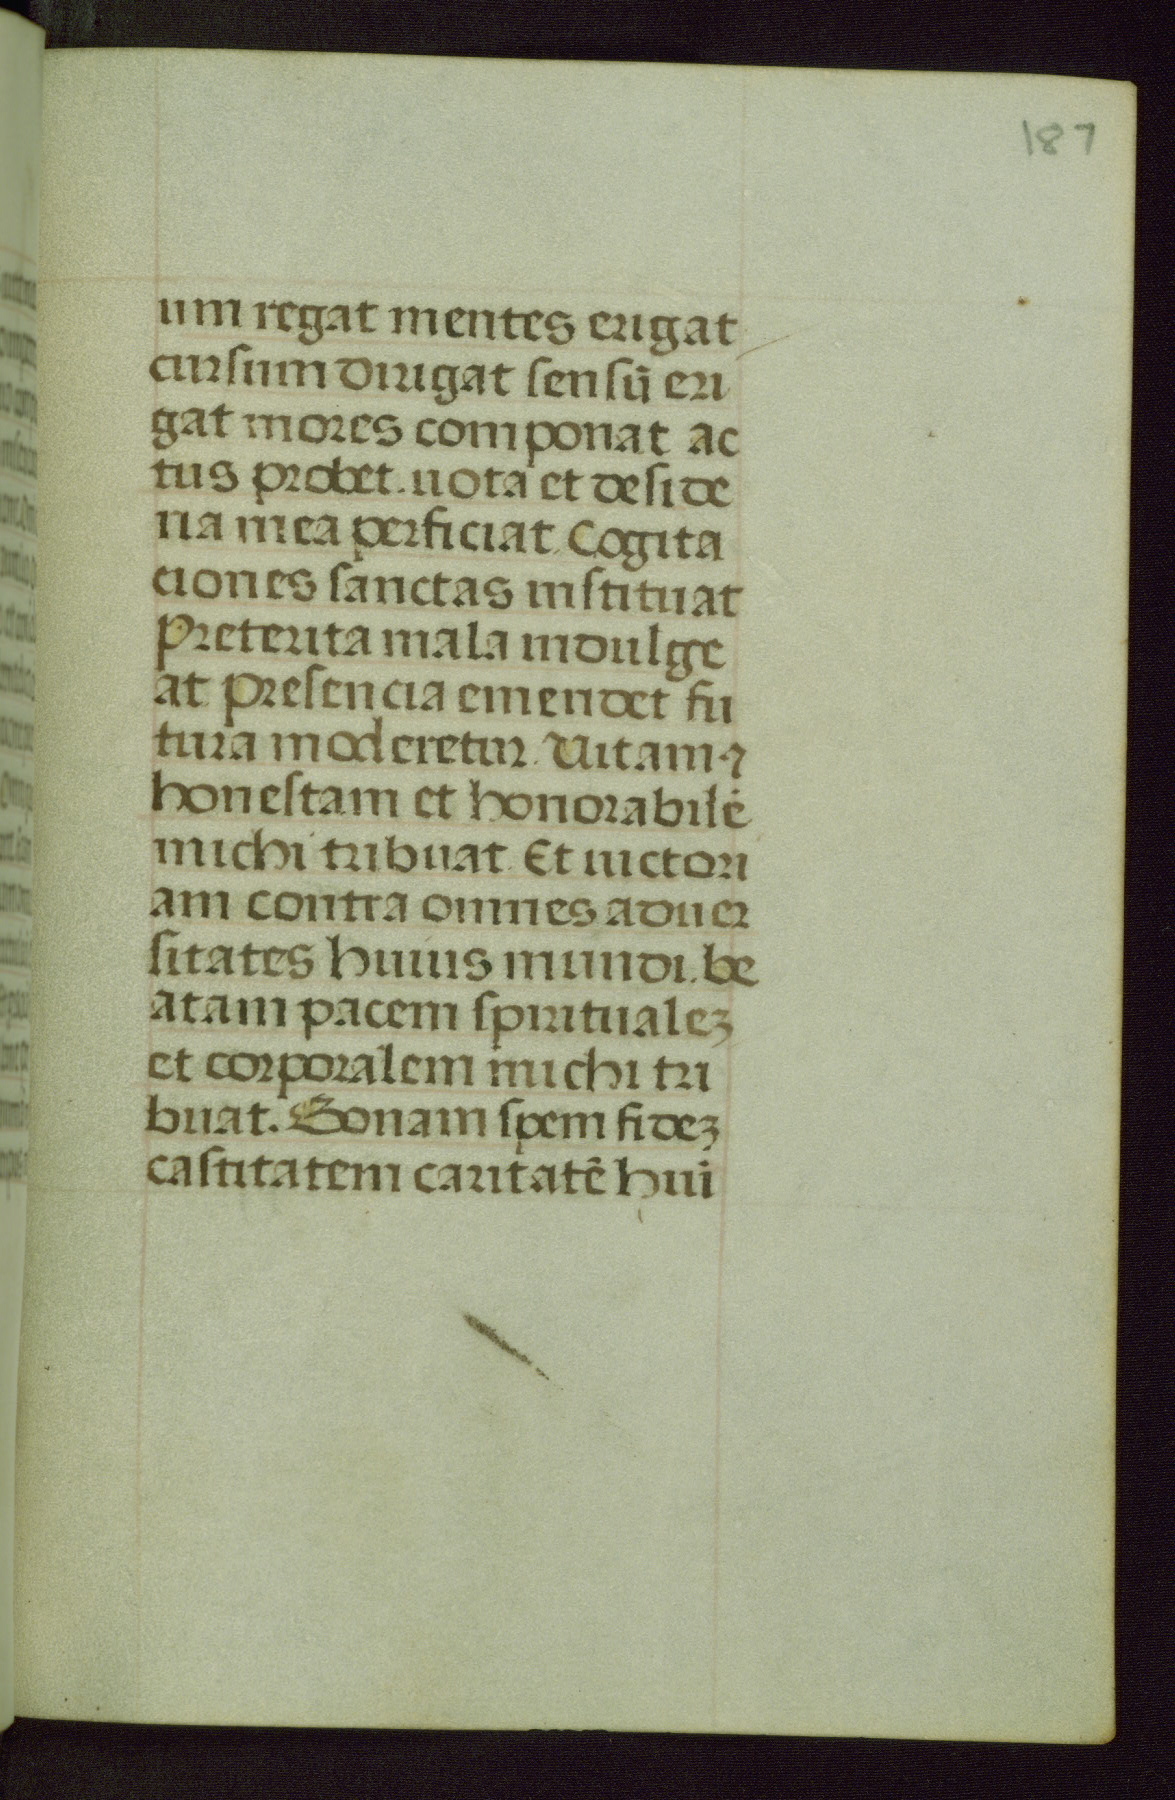 187
um regat mentes erigat
cursum dirigat sensū eri
gat mores componat ac
tus probet. uota et deside
ria mea perficiat. Cogita
ciones sanctas instituat
Preterita mala indulge
at presencia emendet fu
tura moderetur. Uitam ⁊
honestam et honorabilē
michi tribuat. Et uictori
am contra omnes aduer
sitates huius mundi. be
atam pacem spiritualeꝫ
et corporalem michi tri
buat. Bonam spem fideꝫ
castitatem caritatē hui